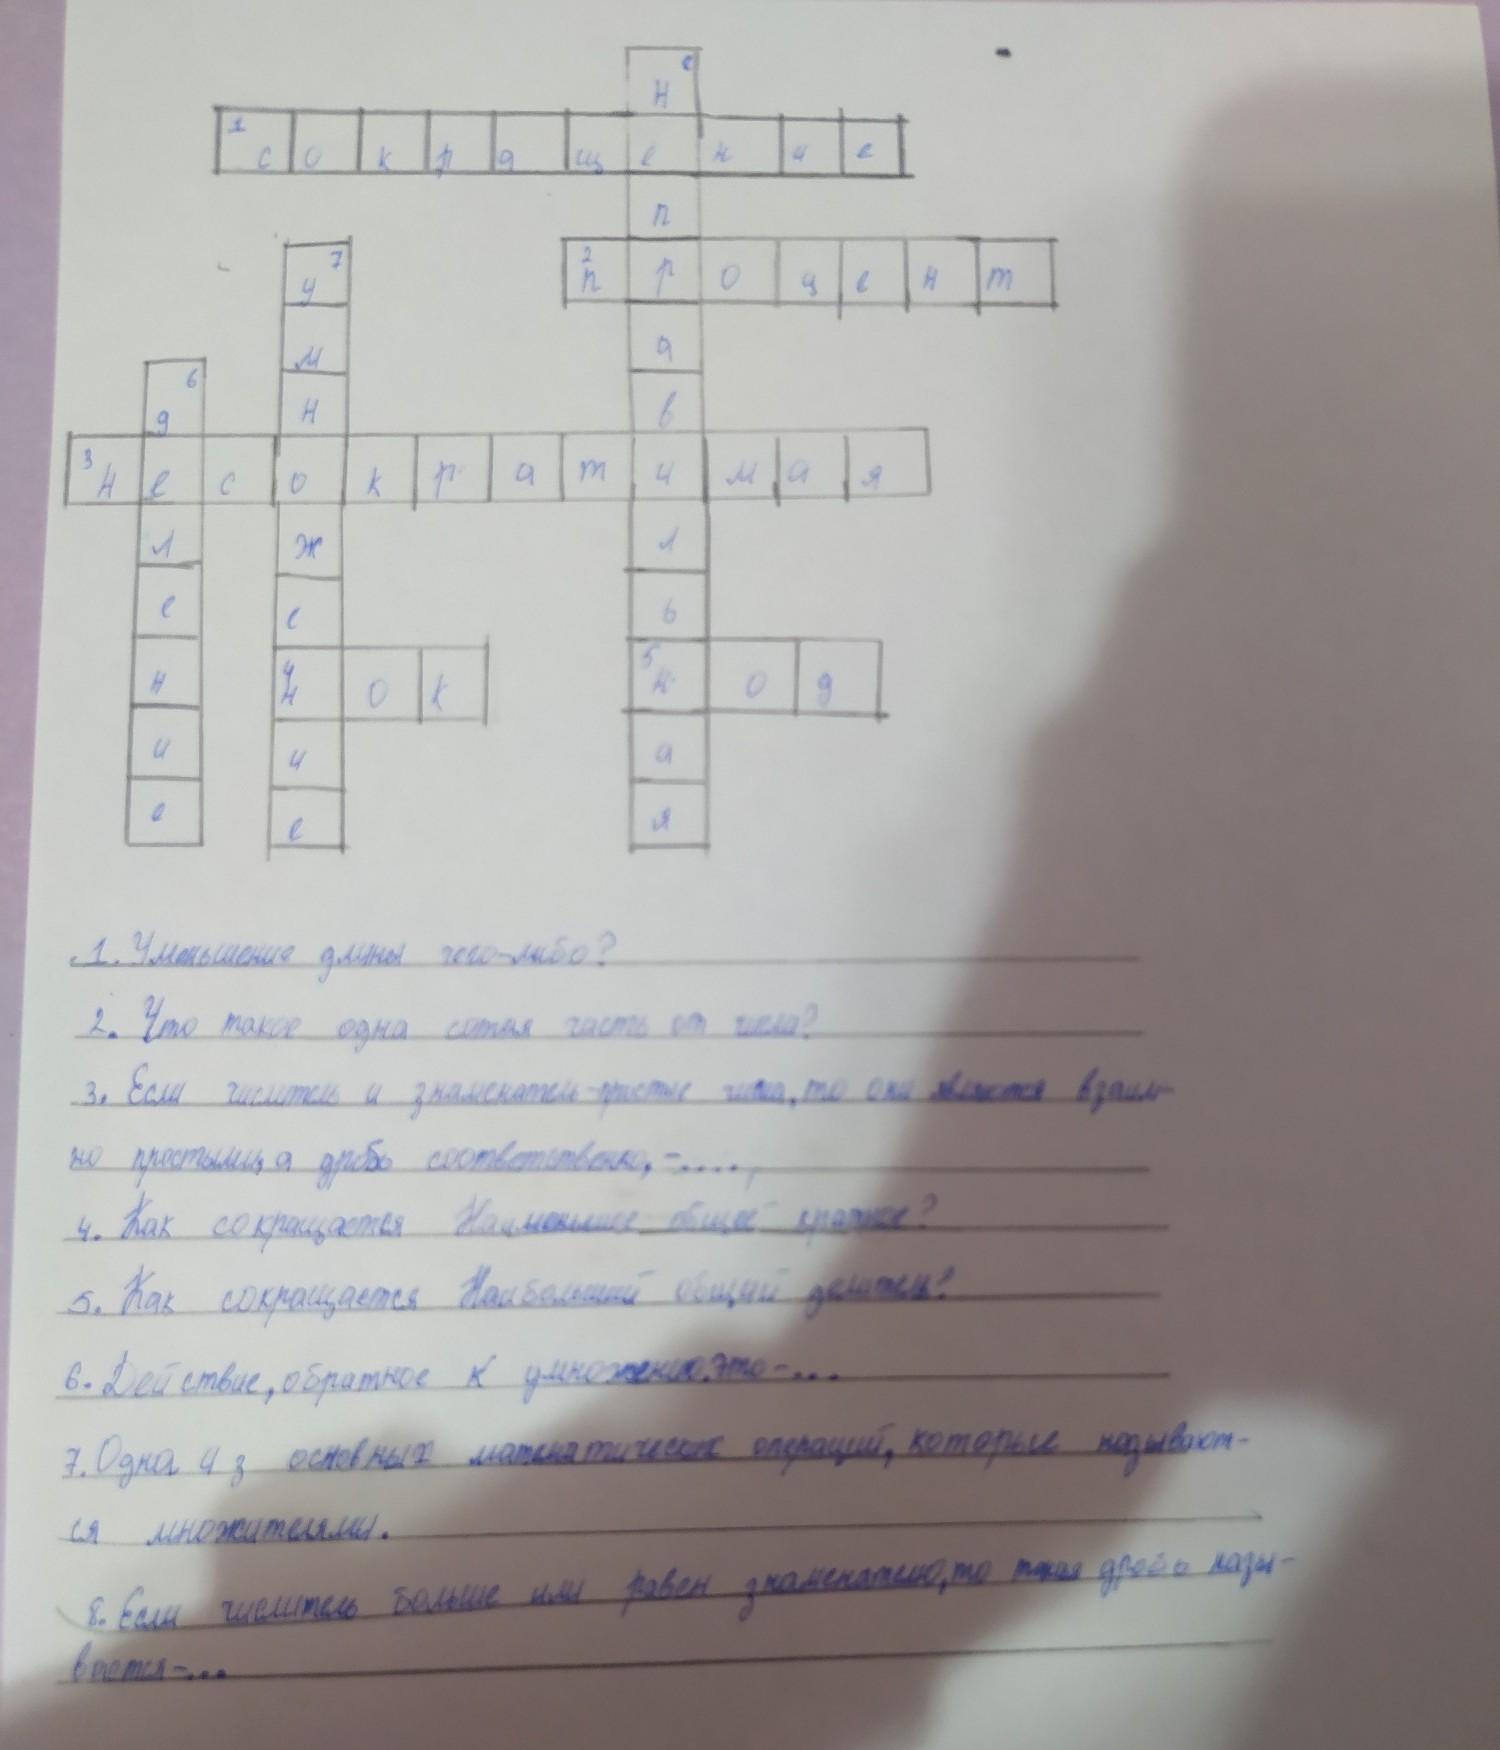 8
н
1
с о к р а щ е н и е
п
7
у
2
п р о ц е н т
м
а
6
д
н
в
3
н е с о к р а т и м а я
л
ж
л
е
е
ь
н
4
н о к
5
н о д
и
и
а
е
е
я
1. Уменьшение длины чего-либо?
2. Что такое одна сотая часть от числа?
3. Если числитель и знаменатель-простые числа, то они являются взаим-
но простыми, а дробь соответственно, -....,
4. Как сокращается Наименьшее общее кратное?
5. Как сокращается Наибольший общий делитель?
6. Действие, обратное к умножению.это-...
7. Одна из основных математических операций, которые называют-
ся множителями.
8. Если числитель больше или равен знаменателю, то такая дробь назы-
вается-...